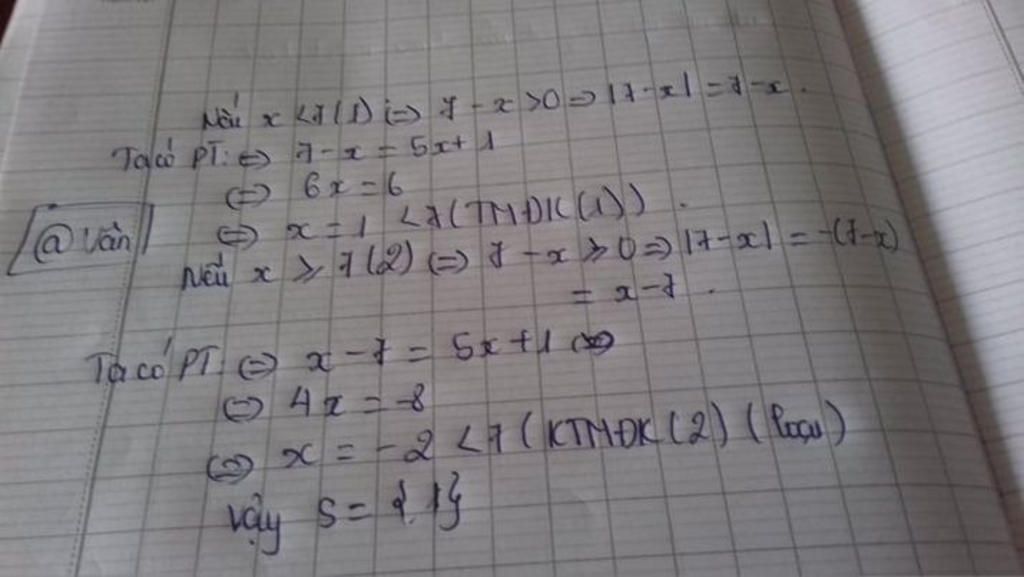 Nếu x < 7 (1) <=> 7 - x > 0 => |7 - x| = 7 - x.
Ta có PT: <=> 7 - x = 5x + 1
<=> 6x = 6
<=> x = 1 < 7 (TMĐK (1)).
@ Vân
Nếu x ≥ 7 (2) <=> 7 - x ≥ 0 => |7 - x| = -(7 - x)
= x - 7.
Ta có PT: <=> x - 7 = 5x + 1
<=> 4x = -8
<=> x = -2 < 7 (KTMĐK (2) (loại)
Vậy S = {1}